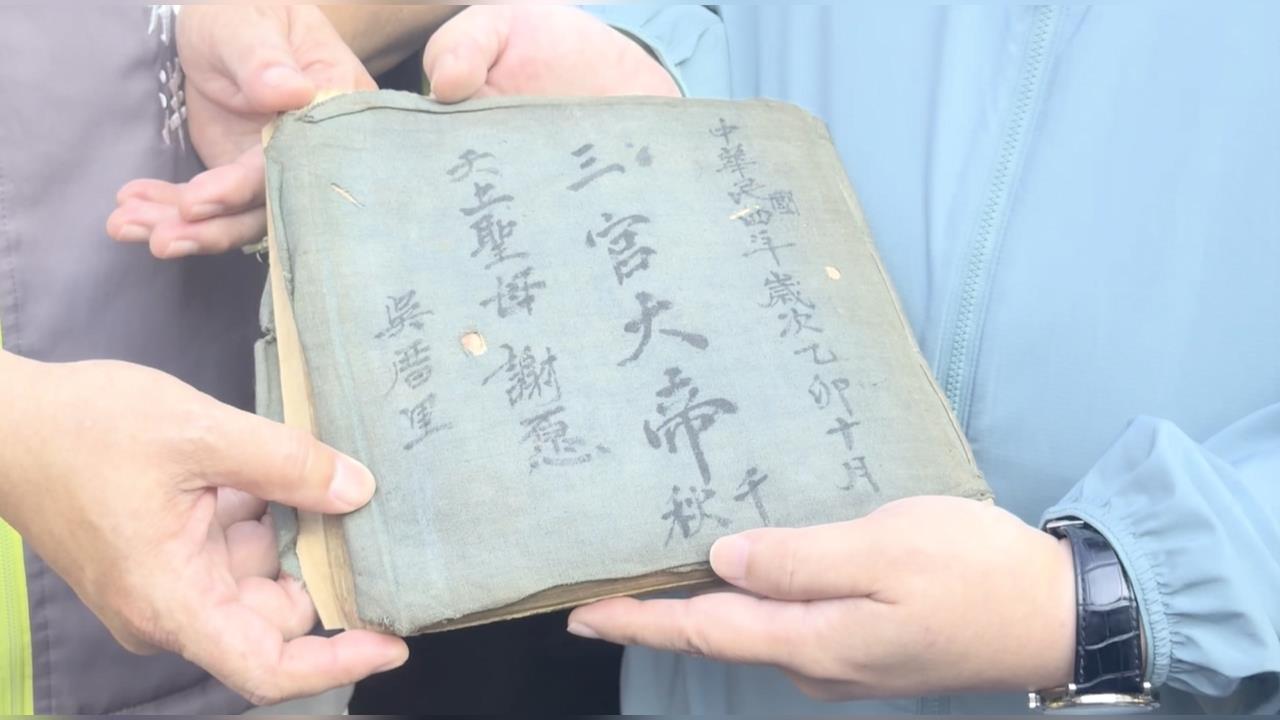 中華民國四年歲次乙卯十月
三宮大帝千秋
天上聖母 謝愿
吳厝里